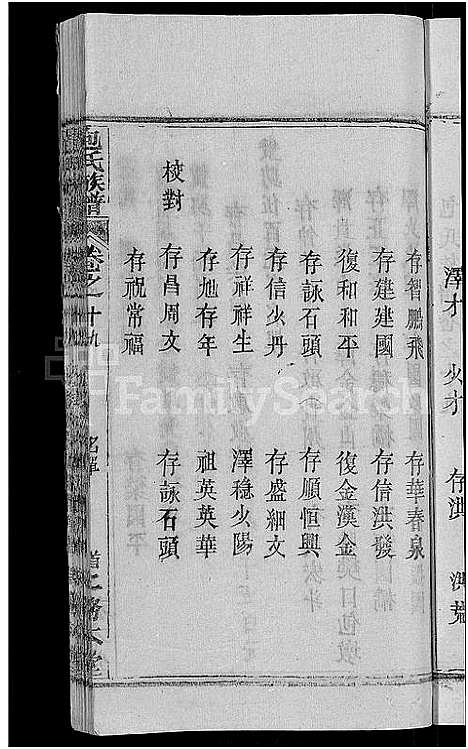 澤才 火才 存洪 洪
存智鵬飛 存華春泉
存建建國 存信洪發
復和和平 復金漢金
存詠石頭 存順恒興
存信火丹 存盛細文
存祥祥生 澤穩火陽
存旭存年 祖英英華
校對 存昌周文 存詠石頭
存祝常福
包氏族譜 卷之十九
FamilySearch